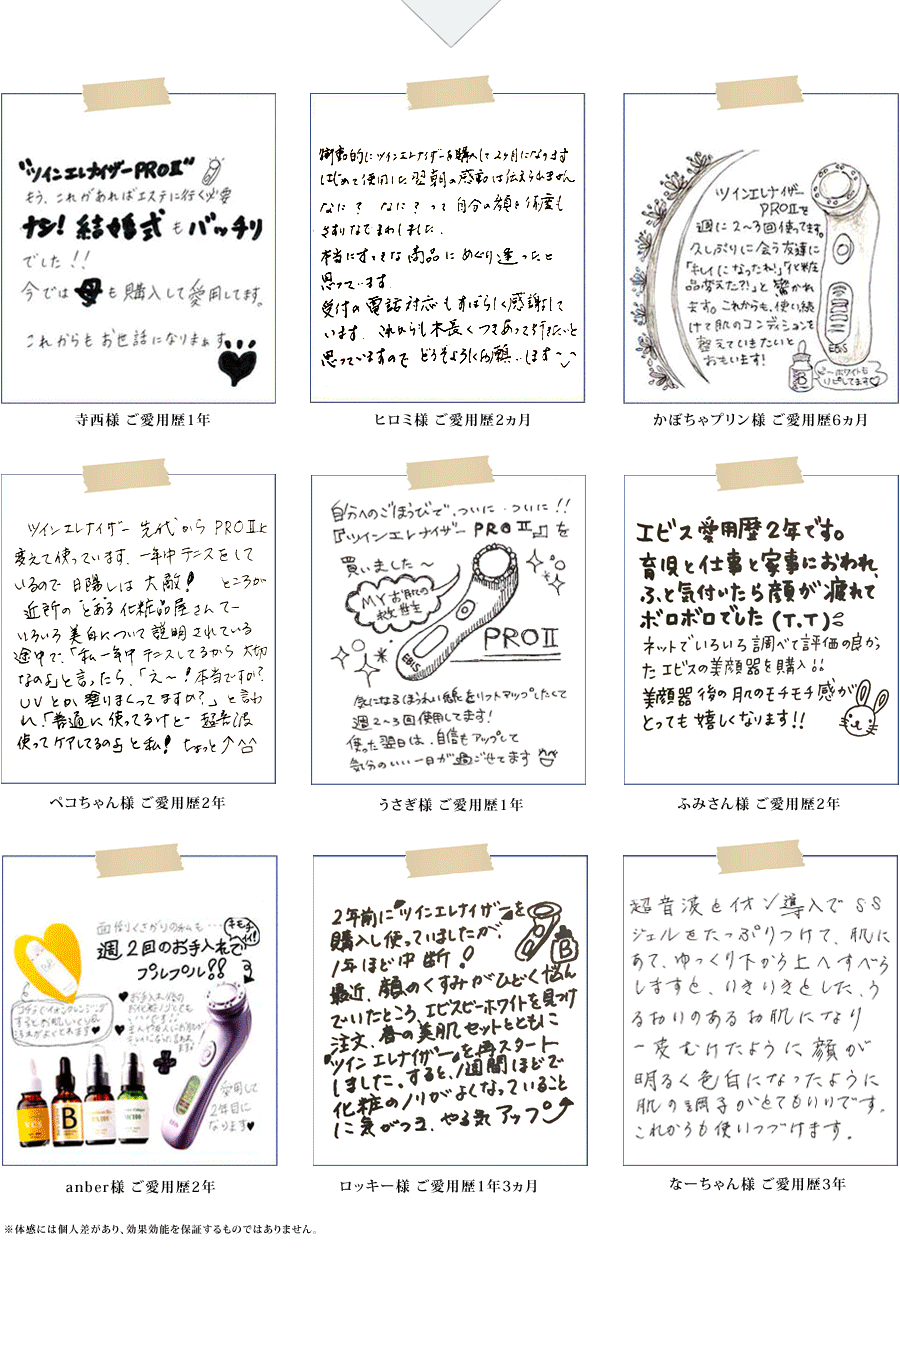 "ツインエレナイザーPROⅡ"
もう、これがあればエステに行く必要
ナシ! 結婚式もバッチリ
でした!!
今では母も購入して愛用してます。
これからもお世話になりまぁす
寺西様 ご愛用歴1年
衝動的にツインエレナイザーを購入して2ヶ月になります
はじめて使用した翌朝の感動は伝えられません
なに? なに?って自分の顔を何度も
さすりなでまわしました。
本当にすてきな商品にめぐり逢ったと
思っています。
受付の電話対応もすばらしく感謝して
います。これからも末長くつきあって行きたいと
思っていますので どうぞよろしくお願いします
ヒロミ様 ご愛用歴2ヵ月
ツインエレナイザー
PROⅡを
週に2〜3回使ってます。
久しぶりに会う友達に
「キレイになったね!」「化粧
品変えた?!」と驚かれ
ます。これからも、使い続
けて肌のコンディションを
整えていきたいと
おもいます!
EBiS
B
ホワイトも
リピしてます♡
かぼちゃプリン様 ご愛用歴6ヵ月
ツインエレナイザー先代からPROⅡに
変えて使っています。一年中テニスをして
いるので日陽しは大敵! ところが
近所のとある化粧品屋さんでー
いろいろ美白について説明されている
途中で、「私一年中テニスしてるから大切
なのよ」と言ったら、「え〜!本当ですか?
UVとか塗りまくってますか?」と言わ
れ、「普通に使ってるけどー超音波
使ってケアしてるのよ」と私! ちょっと↑
ペコちゃん様 ご愛用歴2年
自分へのごほうびで、ついに・ついに!!
『ツインエレナイザー PROⅡ』を
買いました〜
MYお肌の
救世主
PROⅡ
EBiS
気になるほうれい線をリフトアップしたくて
週2〜3回使用してます!
使った翌日は、自信もアップして
気分のいい一日が過ごせてます
うさぎ様 ご愛用歴1年
エビス愛用歴2年です。
育児と仕事と家事におわれ、
ふと気付いたら顔が疲れて
ボロボロでした(T.T)
ネットでいろいろ調べて評価の良かっ
たエビスの美顔器を購入!!
美顔器後の肌のモチモチ感が
とっても嬉しくなります!!
ふみさん様 ご愛用歴2年
面倒くさがりの私も…
週2回のお手入れで
プルプル!!
お手入れ後の
愛用して
2年目に
なります♥
B
anber様 ご愛用歴2年
2年前に『ツインエレナイザー』を
購入し使っていましたが、
1年ほど中断!
最近、顔のくすみがひどく悩ん
でいたところ、エビスビーホワイトを見つけ
注文。春の美肌セットとともに
『ツインエレナイザー』を再スタート
しました。すると、1週間ほどで
化粧のノリがよくなっていること
に気がつき、やる気アップ
B
ロッキー様 ご愛用歴1年3ヵ月
超音波とイオン導入でSS
ジェルをたっぷりつけて、肌に
あて、ゆっくり下から上へすべら
しますと、いきいきとした、う
るおいのあるお肌になり
一皮むけたように顔が
明るく色白になったように
肌の調子がとてもいいです。
これからも使いつづけます。
なーちゃん様 ご愛用歴3年
※体感には個人差があり、効果効能を保証するものではありません。